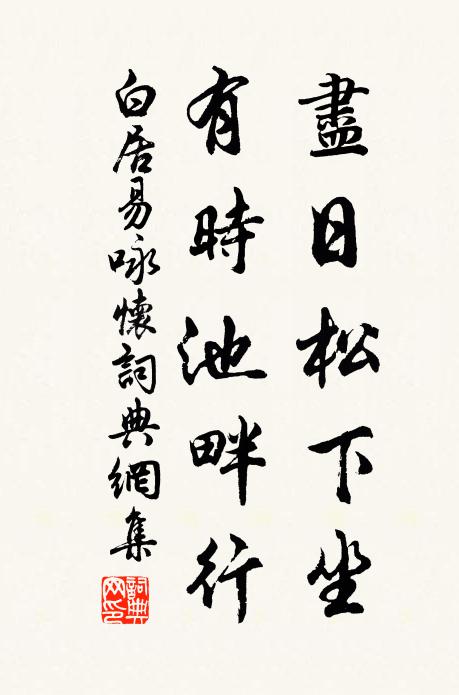 盡日松下坐
有時池畔行
白居易咏懷詞典網集
詞典
网印